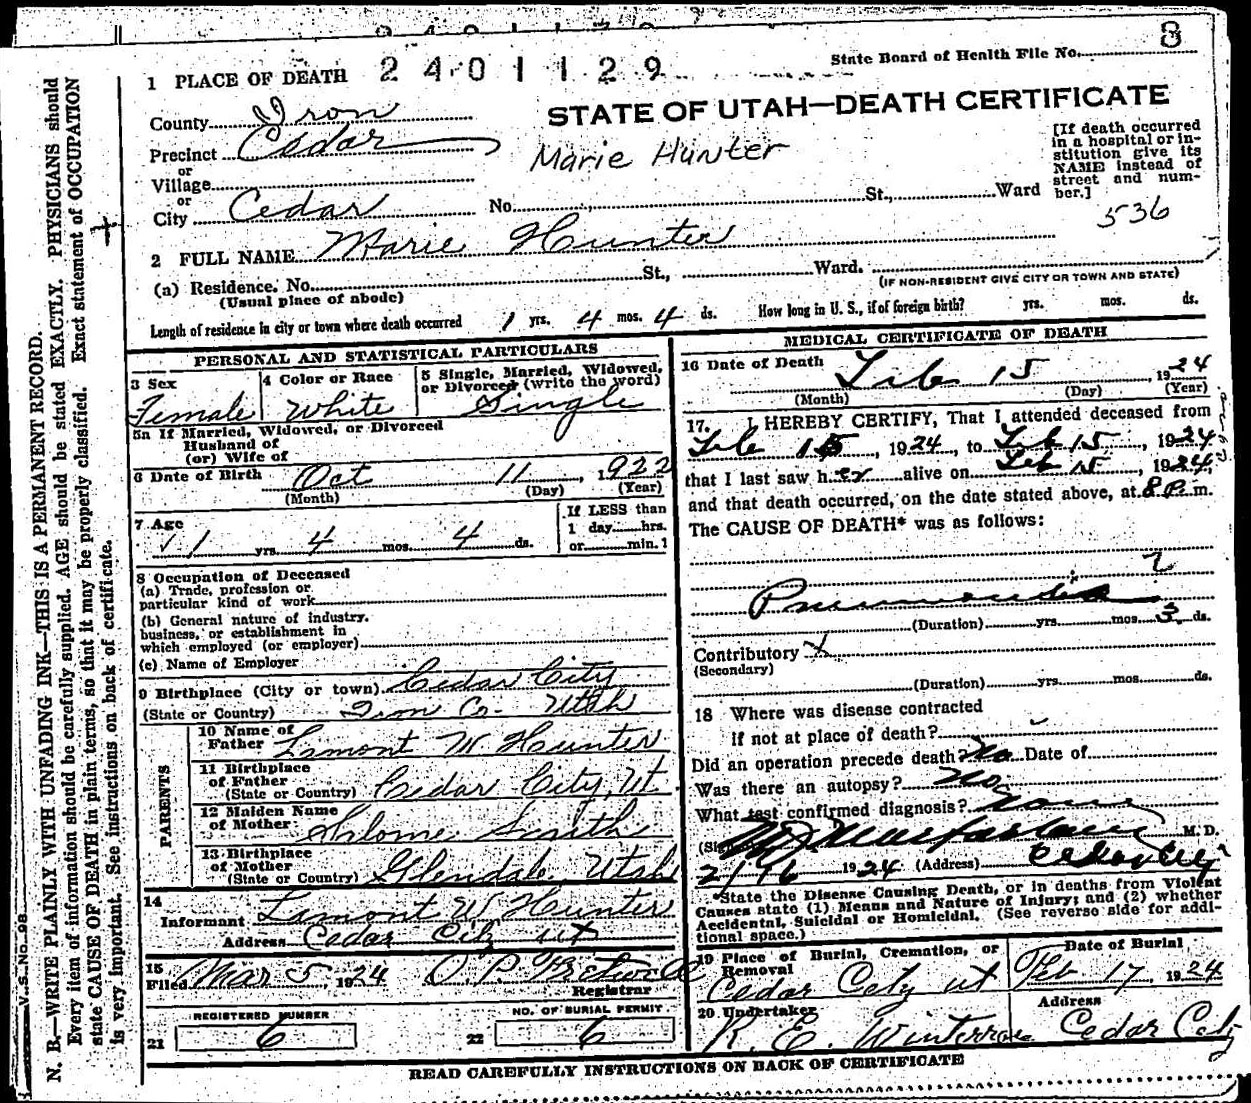 3
State Board of Health File No.
1 PLACE OF DEATH 2401129
STATE OF UTAH—DEATH CERTIFICATE
County Iron
Precinct Cedar
or
Village
or
City Cedar No. St., Ward
Marie Hunter
[If death occurred
in a hospital or in-
stitution give its
NAME instead of
street and num-
ber.]
536
2 FULL NAME Marie Hunter
(a) Residence. No. St., Ward.
(Usual place of abode)
(IF NON-RESIDENT GIVE CITY OR TOWN AND STATE)
Length of residence in city or town where death occurred 1 yrs. 4 mos. 4 ds. How long in U. S., if of foreign birth? yrs. mos. ds.
PERSONAL AND STATISTICAL PARTICULARS
3 Sex
Female
4 Color or Race
White
5 Single, Married, Widowed,
or Divorced (write the word)
Single
5a If Married, Widowed, or Divorced
Husband of
(or) Wife of
6 Date of Birth Oct 11, 1922
(Month) (Day) (Year)
7 Age
1 yrs. 4 mos. 4 ds.
If LESS than
1 day hrs.
or min.?
8 Occupation of Deceased
(a) Trade, profession or
particular kind of work
(b) General nature of industry,
business, or establishment in
which employed (or employer)
(c) Name of Employer
9 Birthplace (City or town) Cedar City
(State or Country) Iron Co. Utah
PARENTS
10 Name of
Father Lamont W Hunter
11 Birthplace
of Father
(State or Country) Cedar City, Ut.
12 Maiden Name
of Mother Smith
13 Birthplace
of Mother
(State or Country) Glendale, Utah
14
Informant Lamont W Hunter
Address Cedar City Ut
15
Filed Mar 5, 1924 O. P.
Registrar
REGISTERED NUMBER
21 6
NO. OF BURIAL PERMIT
22 6
MEDICAL CERTIFICATE OF DEATH
16 Date of Death Feb 15, 1924
(Month) (Day) (Year)
17. I HEREBY CERTIFY, That I attended deceased from
Feb 15, 1924, to Feb 15, 1924
that I last saw her alive on Feb 15, 1924,
and that death occurred, on the date stated above, at 8 P. m.
The CAUSE OF DEATH* was as follows:
Pneumonia
(Duration) yrs. mos. 3 ds.
Contributory
(Secondary)
(Duration) yrs. mos. ds.
18 Where was disease contracted
if not at place of death?
Did an operation precede death? No Date of
Was there an autopsy? No
What test confirmed diagnosis? None
(Signed) Macfarlane M.D.
2/16 1924 (Address) Cedar City
*State the Disease Causing Death, or in deaths from Violent
Causes state (1) Means and Nature of Injury; and (2) whether
Accidental, Suicidal or Homicidal. (See reverse side for addi-
tional space.)
19 Place of Burial, Cremation, or
Removal
Cedar City Ut
Date of Burial
Feb 17, 1924
20 Undertaker
R. E. Winterrose
Address
Cedar City
READ CAREFULLY INSTRUCTIONS ON BACK OF CERTIFICATE
V. S. No. 98
N. B.—WRITE PLAINLY WITH UNFADING INK—THIS IS A PERMANENT RECORD.
Every item of information should be carefully supplied. AGE should be stated EXACTLY. PHYSICIANS should
state CAUSE OF DEATH in plain terms, so that it may be properly classified. Exact statement of OCCUPATION
is very important. See instructions on back of certificate.